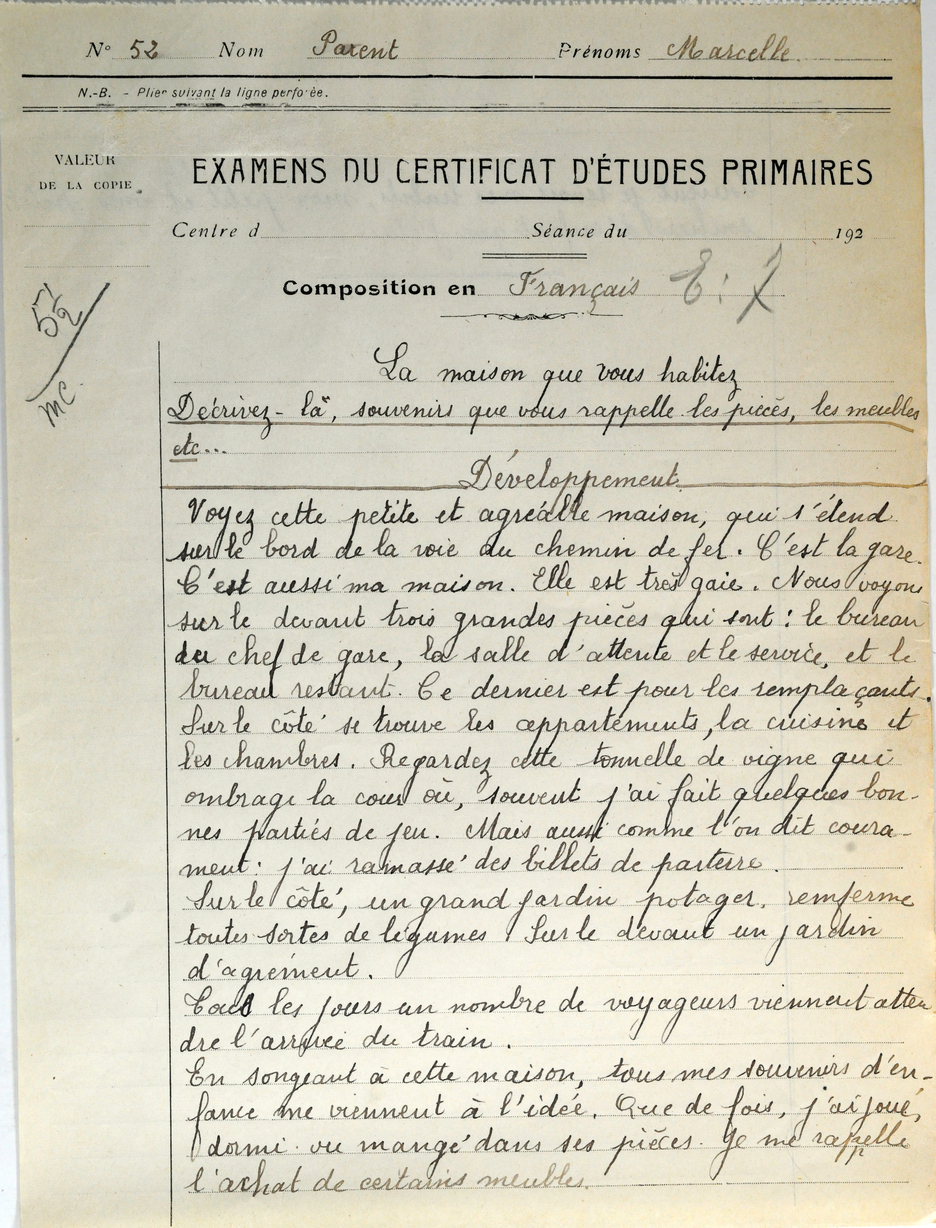 N° 52 Nom Parent Prénoms Marcelle
N.-B. - Plier suivant la ligne perforée.
VALEUR
DE LA COPIE
EXAMENS DU CERTIFICAT D'ÉTUDES PRIMAIRES
Centre d Séance du 192
Composition en Français E: 7
5 1/2
MC
La maison que vous habitez
Décrivez-la, souvenirs que vous rappelle les pièces, les meubles
etc...
Développement
Voyez cette petite et agréable maison, qui s'étend
sur le bord de la voie du chemin de fer. C'est la gare.
C'est aussi ma maison. Elle est très gaie. Nous voyons
sur le devant trois grandes pièces qui sont : le bureau
du chef de gare, la salle d'attente et le service, et le
bureau restant. Ce dernier est pour les remplaçants.
Sur le côté se trouve les appartements, la cuisine et
les chambres. Regardez cette tonnelle de vigne qui
ombrage la cour où, souvent j'ai fait quelques bon-
nes parties de jeu. Mais aussi comme l'on dit coura-
ment : j'ai ramassé des billets de parterre.
Sur le côté, un grand jardin potager, renferme
toutes sortes de légumes. Sur le devant un jardin
d'agrément.
Tous les jours un nombre de voyageurs viennent atten
dre l'arrivée du train.
En songeant à cette maison, tous mes souvenirs d'en-
fance me viennent à l'idée. Que de fois, j'ai joué,
dormi ou mangé dans ses pièces. Je me rappelle
l'achat de certains meubles.